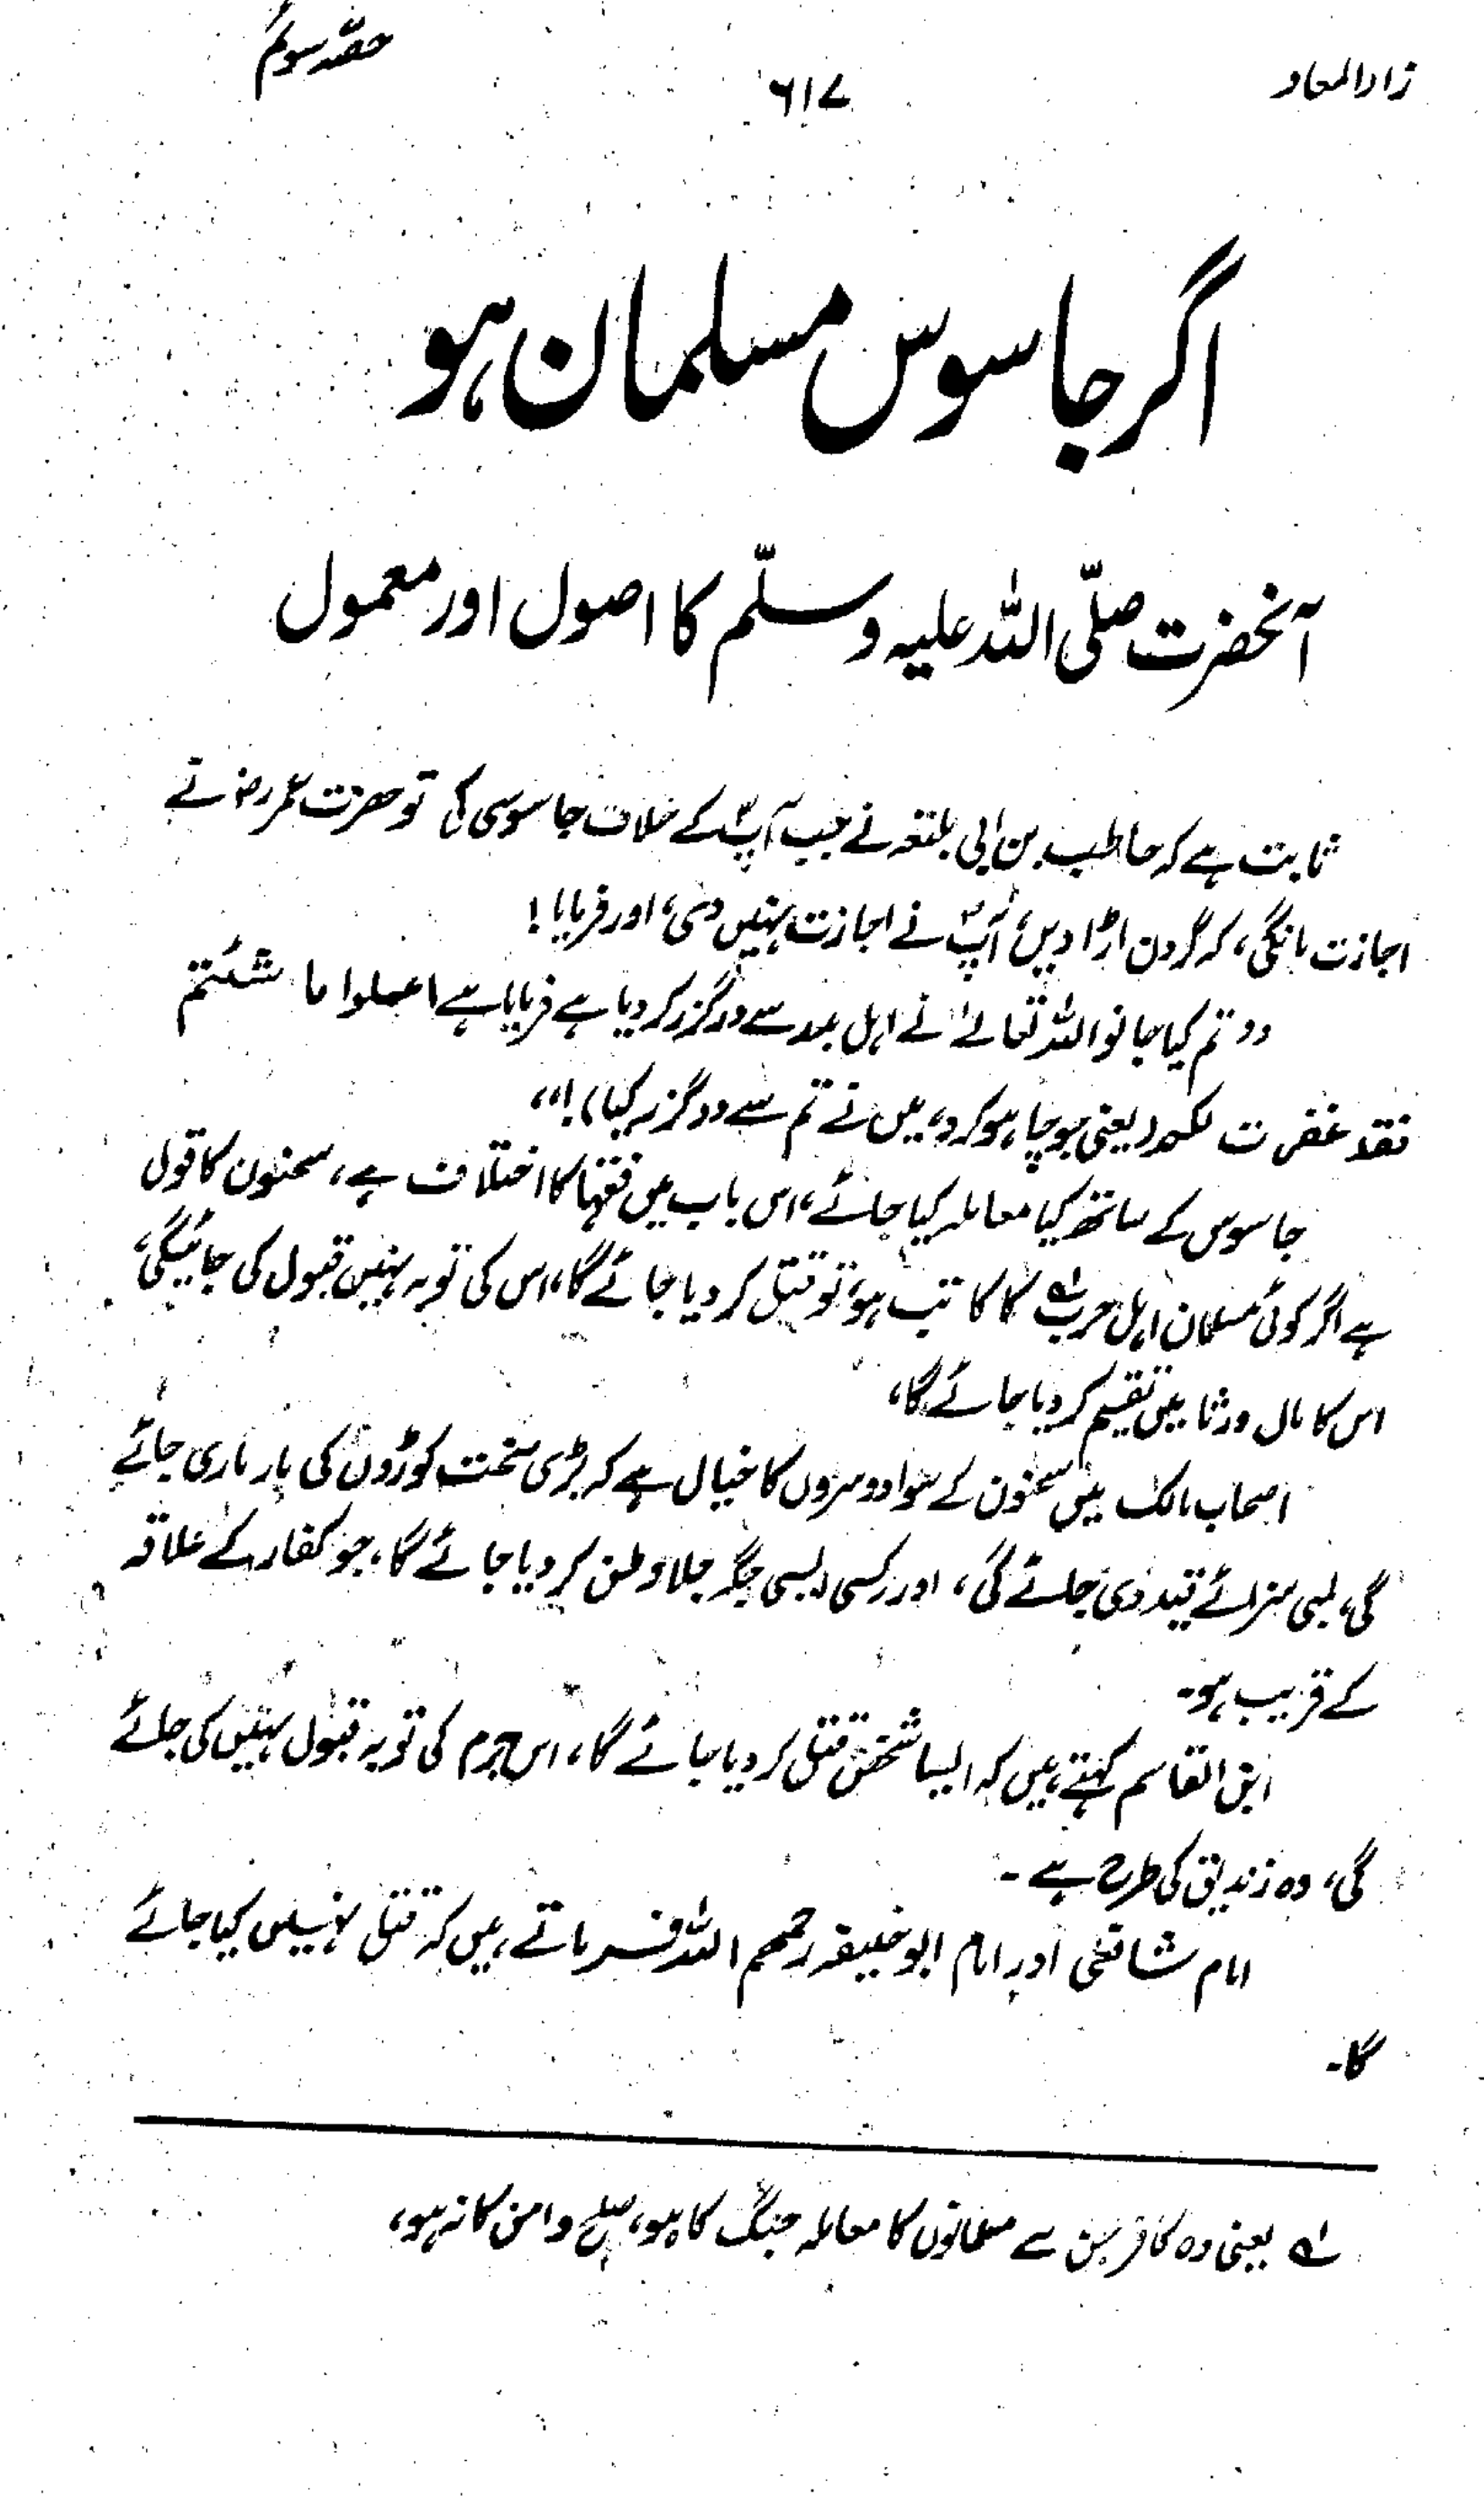 زاد المعاد ۶۱۷ حصّہ سوئم
اگر جاسوس مسلمان ہو
آنحضرت صلّی اللہ علیہ وسلّم کا اصول اور معمول
ثابت ہے کہ حاطب بن ابی بلتعہ نے جب آپؐ کے خلاف جاسوسی کی تو حضرت عمر رضؓ نے
اجازت مانگی، کہ گردن اڑا دیں، آپؐ نے اجازت نہیں دی، اور فرمایا!
دد تم کیا جانو اللہ تعالےٰ نے اہل بدر سے درگزر کر دیا ہے فرمایا ہے اعملوا ما شئتم
فقد غفرت لکمد یعنی جو چاہو کرو، میں نے تم سے درگزر کیا،!،،
جاسوس کے ساتھ کیا معاملہ کیا جائے، اس باب میں فقہا کا اختلاف ہے، سحنون کا قول
ہے اگر کوئی مسلمان اہل حرب لہ کا کاتب ہو، تو قتل کر دیا جائے گا، اس کی توبہ نہیں قبول کی جائیگی،
اس کا مال ورثا میں تقسیم کر دیا جائے گا،
اصحاب مالک میں سحنون کے سوا دوسروں کا خیال ہے کہ بڑی سخت کوڑوں کی مار ماری جائے
گی، لمبی سزائے قید دی جائے گی، اور کسی ایسی جگہ جلا وطن کر دیا جائے گا، جو کفار کے علاقہ
کے قریب ہو۔
ابن القاسم کہتے ہیں کہ ایسا شخص قتل کر دیا جائے گا، اس جرم کی توبہ قبول نہیں کی جائے
گی، وہ زندیق کی طرح ہے ۔
امام شافعی اور امام ابو حنیفہ رحمہم اللہ فرماتے ہیں کہ قتل نہیں کیا جائے
گا۔
لہ یعنی وہ کافر جن سے مسلمانوں کا معاملہ جنگ کا ہو، صلح و امن کا نہ ہو،